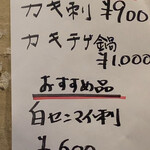 カキ刺 ¥900
カキチゲ鍋
¥1,000
おすすめ品
白センマイ刺
¥600